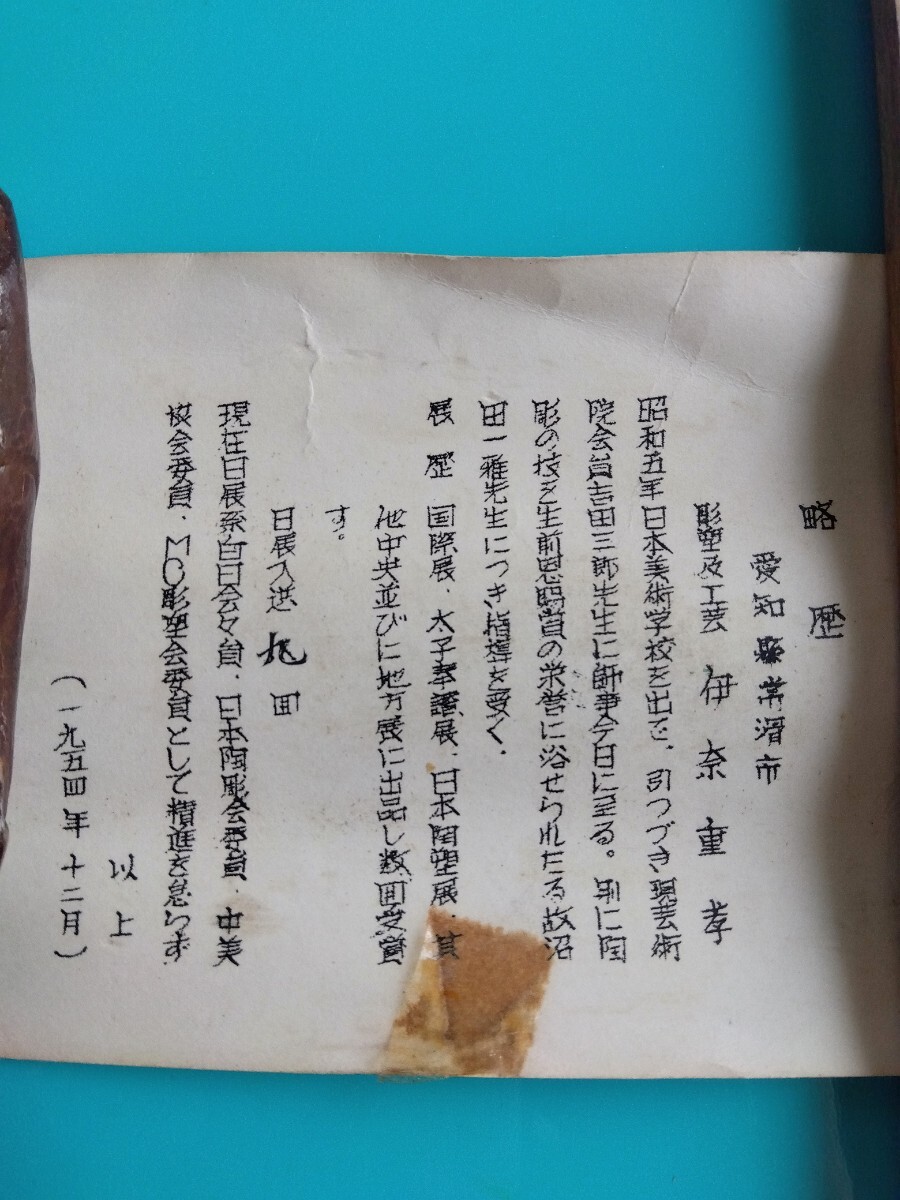 略歴
愛知県常滑市
彫塑及工芸 伊奈重孝
昭和五年日本美術学校を出で、引つづき現芸術
院会員吉田三郎先生に師事今日に至る。別に陶
彫の技を生前恩賜賞の栄誉に浴せられたる故沼
田一雅先生につき指導を受く、
展歴 国際展、太子奉讃展、日本陶塑展、其
他中央並びに地方展に出品し数回受賞
す。
日展入選 九回
現在日展系白日会々員、日本陶彫会委員、中美
校会委員、MC彫塑会委員として精進を怠らず
以上
(一九五四年十二月)